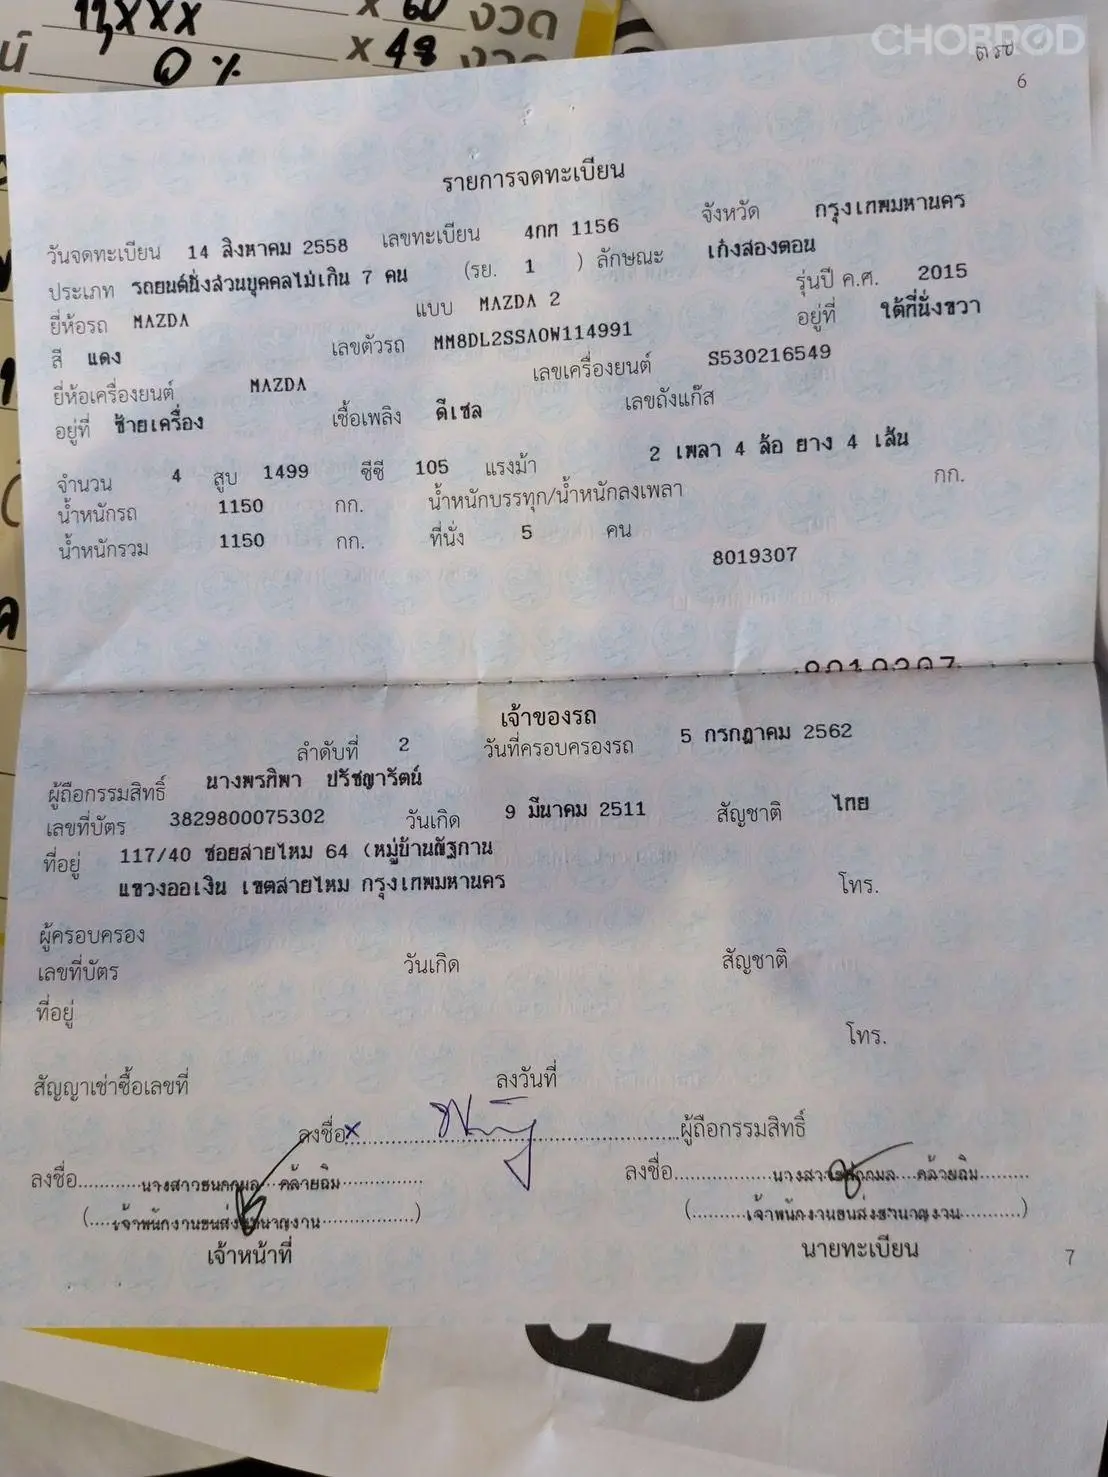 x 60 งวด
0 % x 48 งวด
CHOBROD
6
รายการจดทะเบียน
วันจดทะเบียน 14 สิงหาคม 2558 เลขทะเบียน 4กศ 1156 จังหวัด กรุงเทพมหานคร
ประเภท รถยนต์นั่งส่วนบุคคลไม่เกิน 7 คน (รย. 1 ) ลักษณะ เก๋งสองตอน
ยี่ห้อรถ MAZDA แบบ MAZDA 2 รุ่นปี ค.ศ. 2015
สี แดง เลขตัวรถ MM8DL2SSA0W114991 อยู่ที่ ใต้ที่นั่งขวา
ยี่ห้อเครื่องยนต์ MAZDA เลขเครื่องยนต์ S530216549
อยู่ที่ ซ้ายเครื่อง เชื้อเพลิง ดีเซล เลขถังแก๊ส
จำนวน 4 สูบ 1499 ซีซี 105 แรงม้า 2 เพลา 4 ล้อ ยาง 4 เส้น
น้ำหนักรถ 1150 กก. น้ำหนักบรรทุก/น้ำหนักลงเพลา กก.
น้ำหนักรวม 1150 กก. ที่นั่ง 5 คน
8019307
เจ้าของรถ
ลำดับที่ 2 วันที่ครอบครองรถ 5 กรกฎาคม 2562
ผู้ถือกรรมสิทธิ์ นางพรทิพา ปรัชญารัตน์
เลขที่บัตร 3829800075302 วันเกิด 9 มีนาคม 2511 สัญชาติ ไทย
ที่อยู่ 117/40 ซอยสายไหม 64 (หมู่บ้านณัฐกาน
แขวงออเงิน เขตสายไหม กรุงเทพมหานคร โทร.
ผู้ครอบครอง
เลขที่บัตร วันเกิด สัญชาติ
ที่อยู่
โทร.
สัญญาเช่าซื้อเลขที่ ลงวันที่
ลงชื่อ x ผู้ถือกรรมสิทธิ์
ลงชื่อ นางสาวธนกมล คล้ายฉิม ลงชื่อ นางสาวธนกมล คล้ายฉิม
(เจ้าพนักงานขนส่งชำนาญงาน) (เจ้าพนักงานขนส่งชำนาญงาน)
เจ้าหน้าที่ นายทะเบียน
7